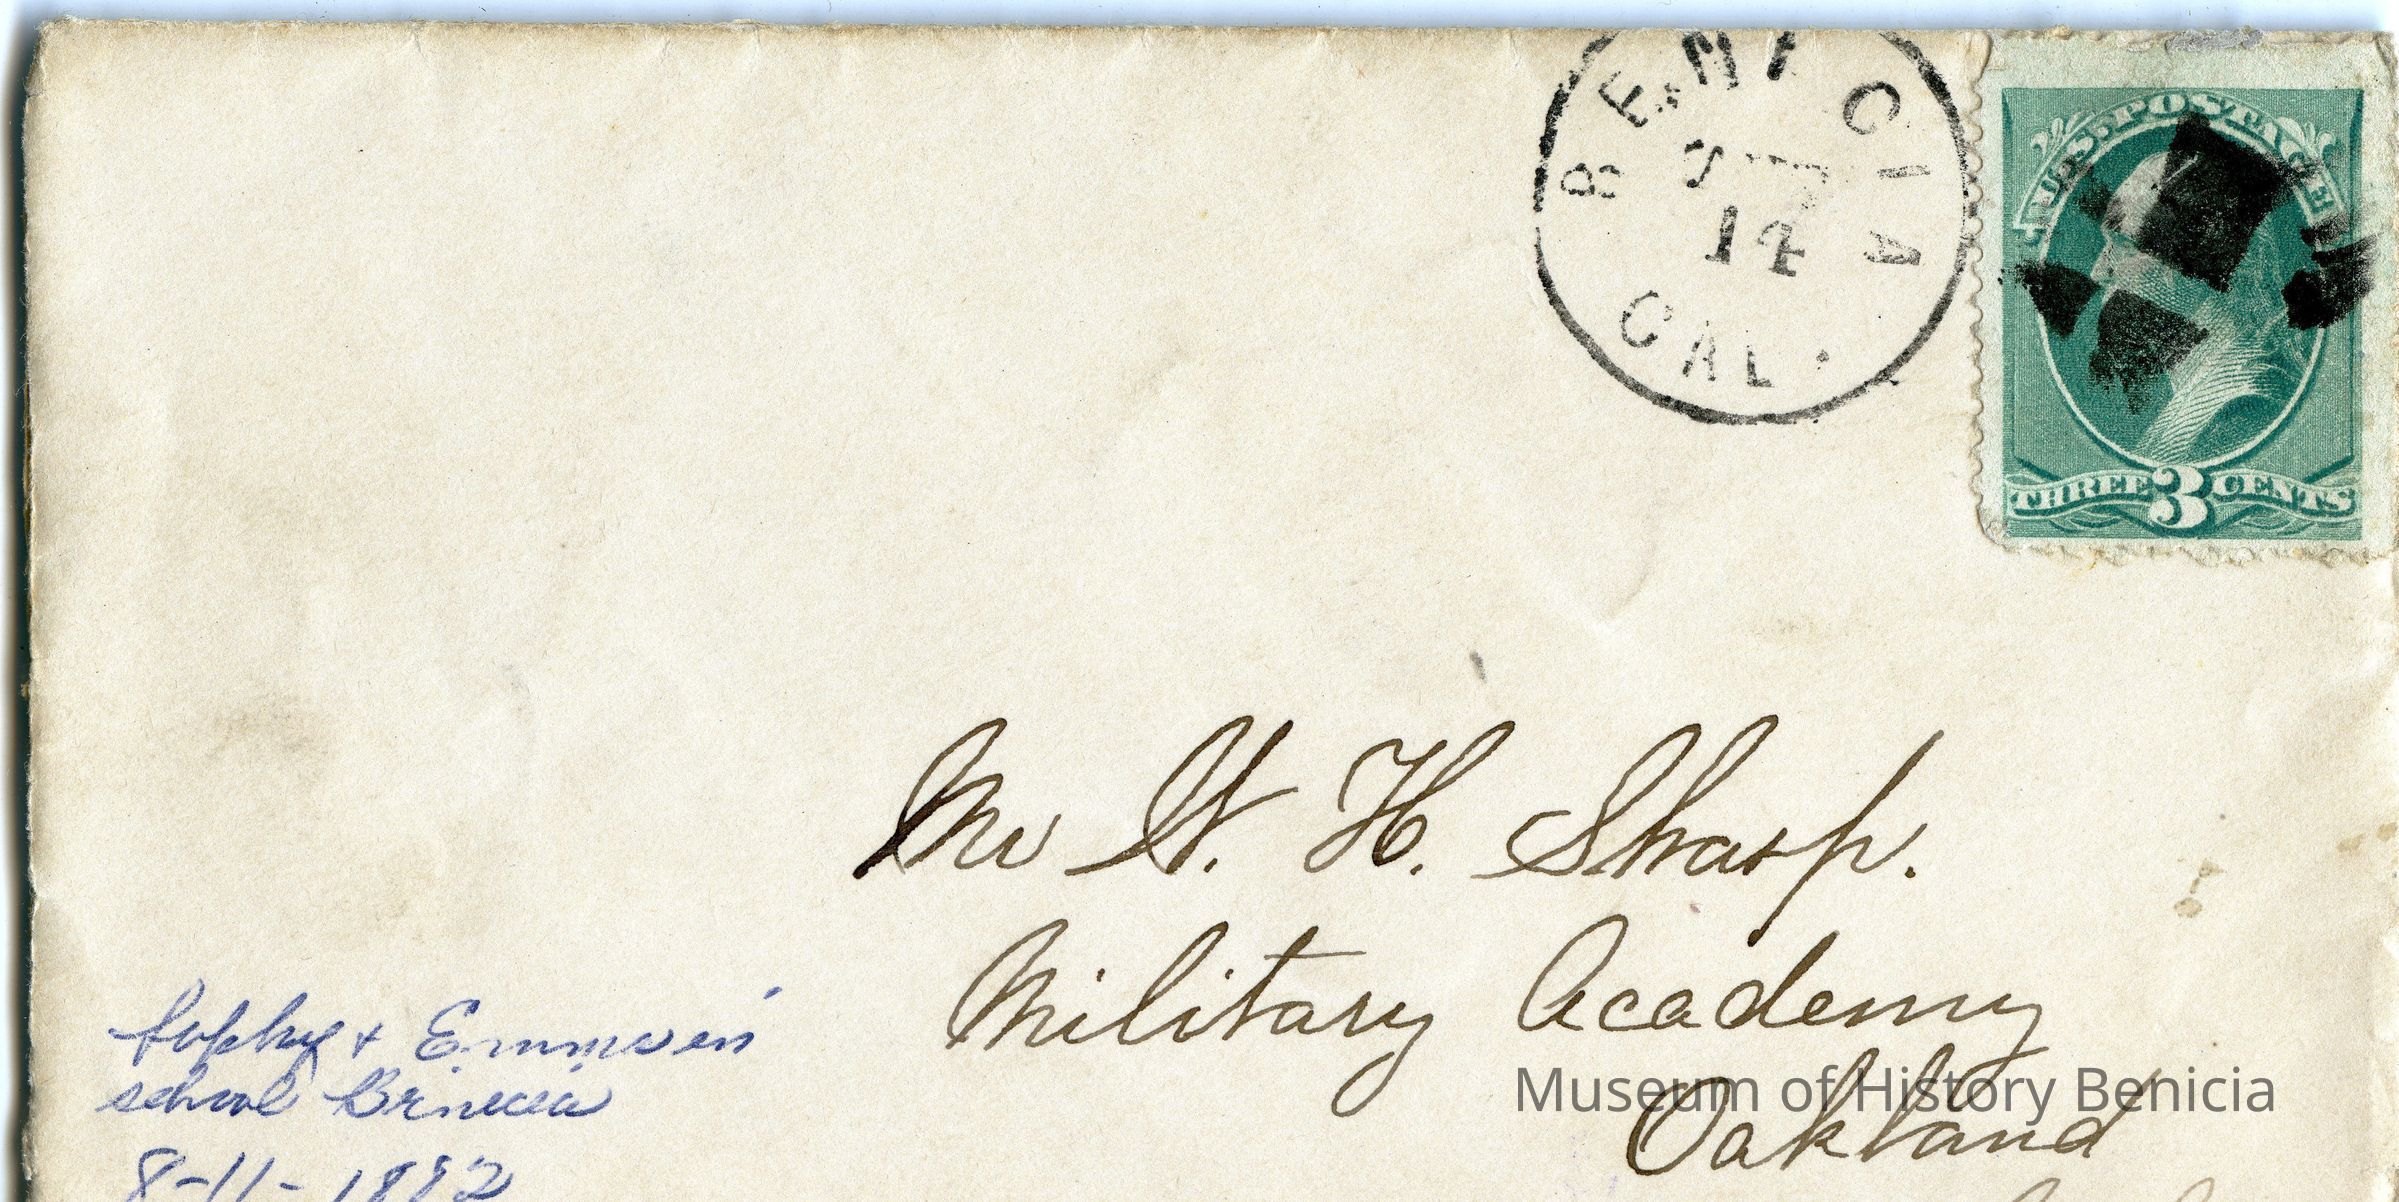 BENICIA
S 14
CAL.
U.S. POSTAGE
THREE 3 CENTS
Mr W. H. Sharp.
Military Academy
Oakland
Sophy & Emma in
school Benicia
8-11-1882
Museum of History Benicia